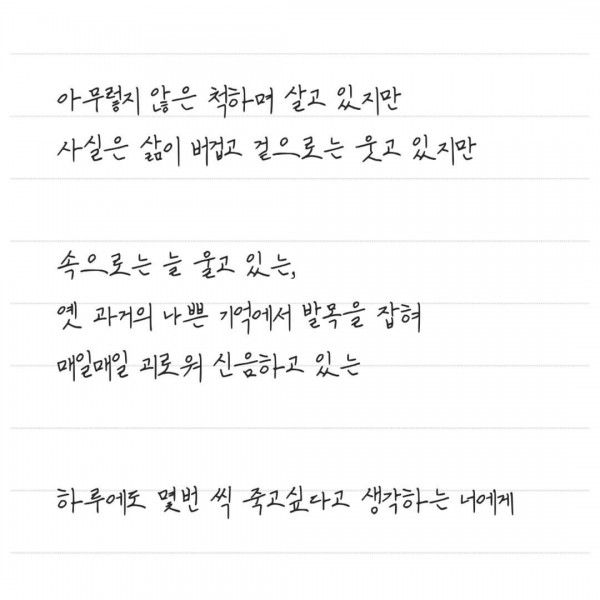 아무렇지 않은 척하며 살고 있지만
사실은 삶이 버겁고 겉으로는 웃고 있지만
속으로는 늘 울고 있는,
옛 과거의 나쁜 기억에서 발목을 잡혀
매일매일 괴로워 신음하고 있는
하루에도 몇번 씩 죽고싶다고 생각하는 너에게